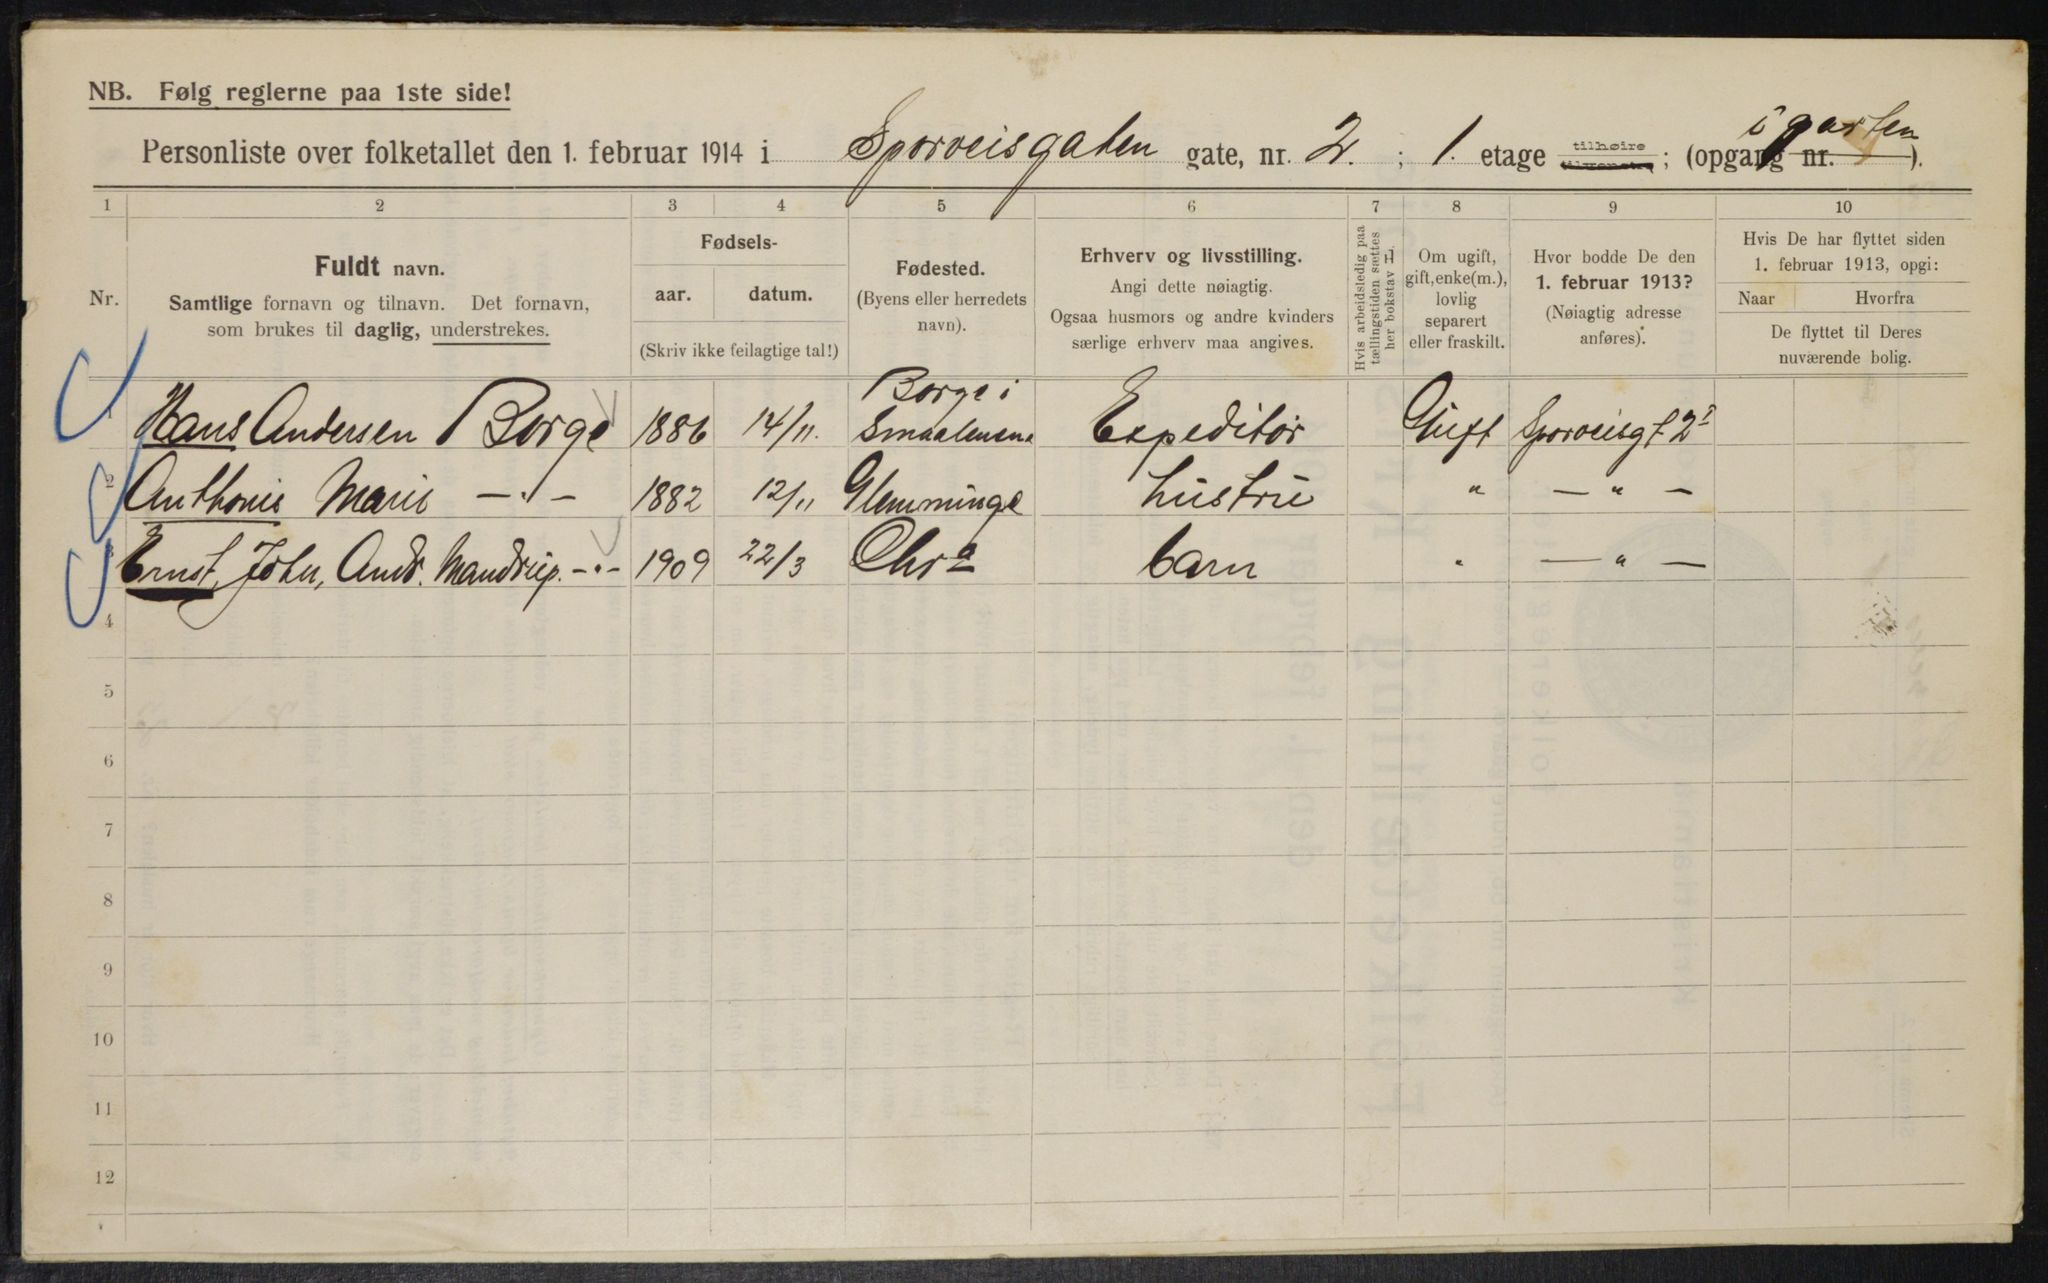 NB. Følg reglerne paa 1ste side!
Personliste over folketallet den 1. februar 1914 i Sporveisgaten gate, nr. 2. ; 1. etage tilhøire tilvenstre ; (opgang nr. ). i garten
1 2 3 4 5 6 7 8 9 10
Nr.
Fuldt navn.
Samtlige fornavn og tilnavn. Det fornavn,
som brukes til daglig, understrekes.
Fødsels-
aar. datum.
(Skriv ikke feilagtige tal!)
Fødested.
(Byens eller herredets
navn).
Erhverv og livsstilling.
Angi dette nøiagtig.
Ogsaa husmors og andre kvinders
særlige erhverv maa angives.
Hvis arbeidsledig paa
tællingstiden sættes
her bokstav L.
Om ugift,
gift, enke(m.),
lovlig
separert
eller fraskilt.
Hvor bodde De den
1. februar 1913?
(Nøiagtig adresse
anføres).
Hvis De har flyttet siden
1. februar 1913, opgi:
Naar Hvorfra
De flyttet til Deres
nuværende bolig.
1 Hans Andersen Borge 1886 14/11. Borge i Smaalenene Expeditør Gift Sporveisgt. 2I
2 Anthonie Marie — . — 1882 12/11 Glemminge hustru " — " —
3 Ernst, John, Andr. Mandrup. — . — 1909 22/3 Chr a barn " — " —
4
5
6
7
8
9
10
11
12